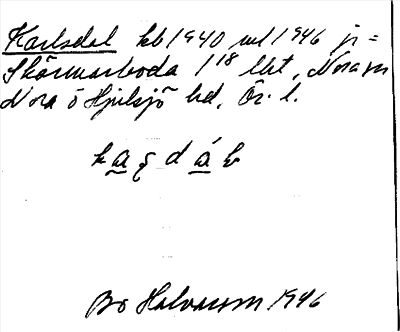 Karlsdal kb 1940 ml 1946 jr =
Skärmarboda 1/18 lht, Nora sn
Nora o Hjulsjö hd, Ör. l.
Bo Halvarsson 1946